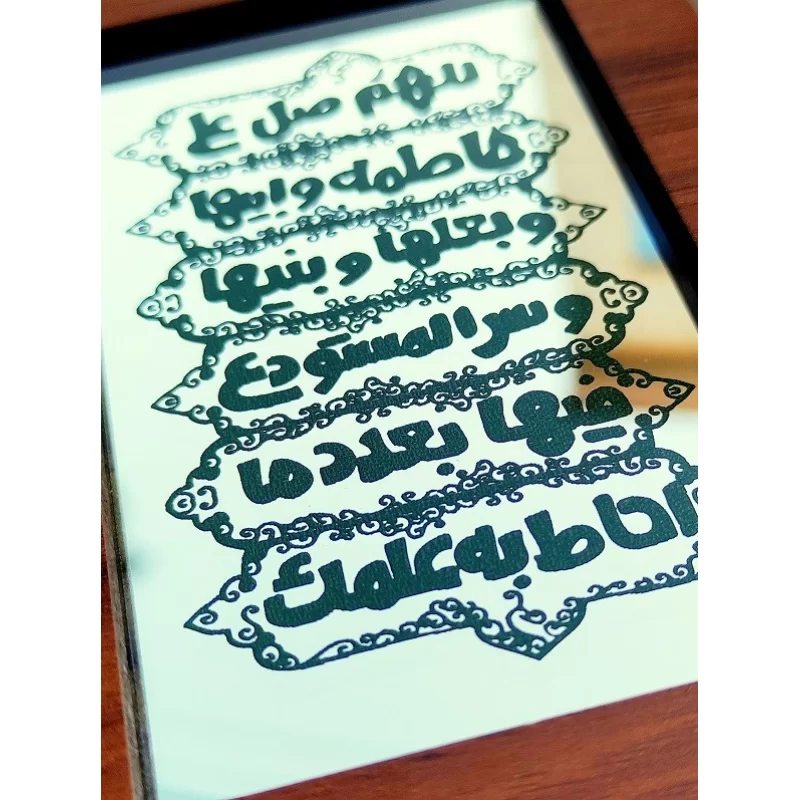 اللهم صل علی
فاطمه و ابیها
و بعلها و بنیها
و سر المستودع
فیها بعدد ما
احاط به علمک